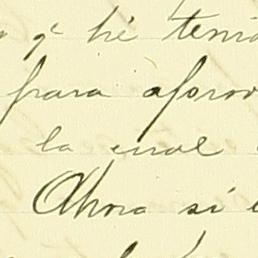 q̃ hé tenid
para aprov
la cual
Ahora si